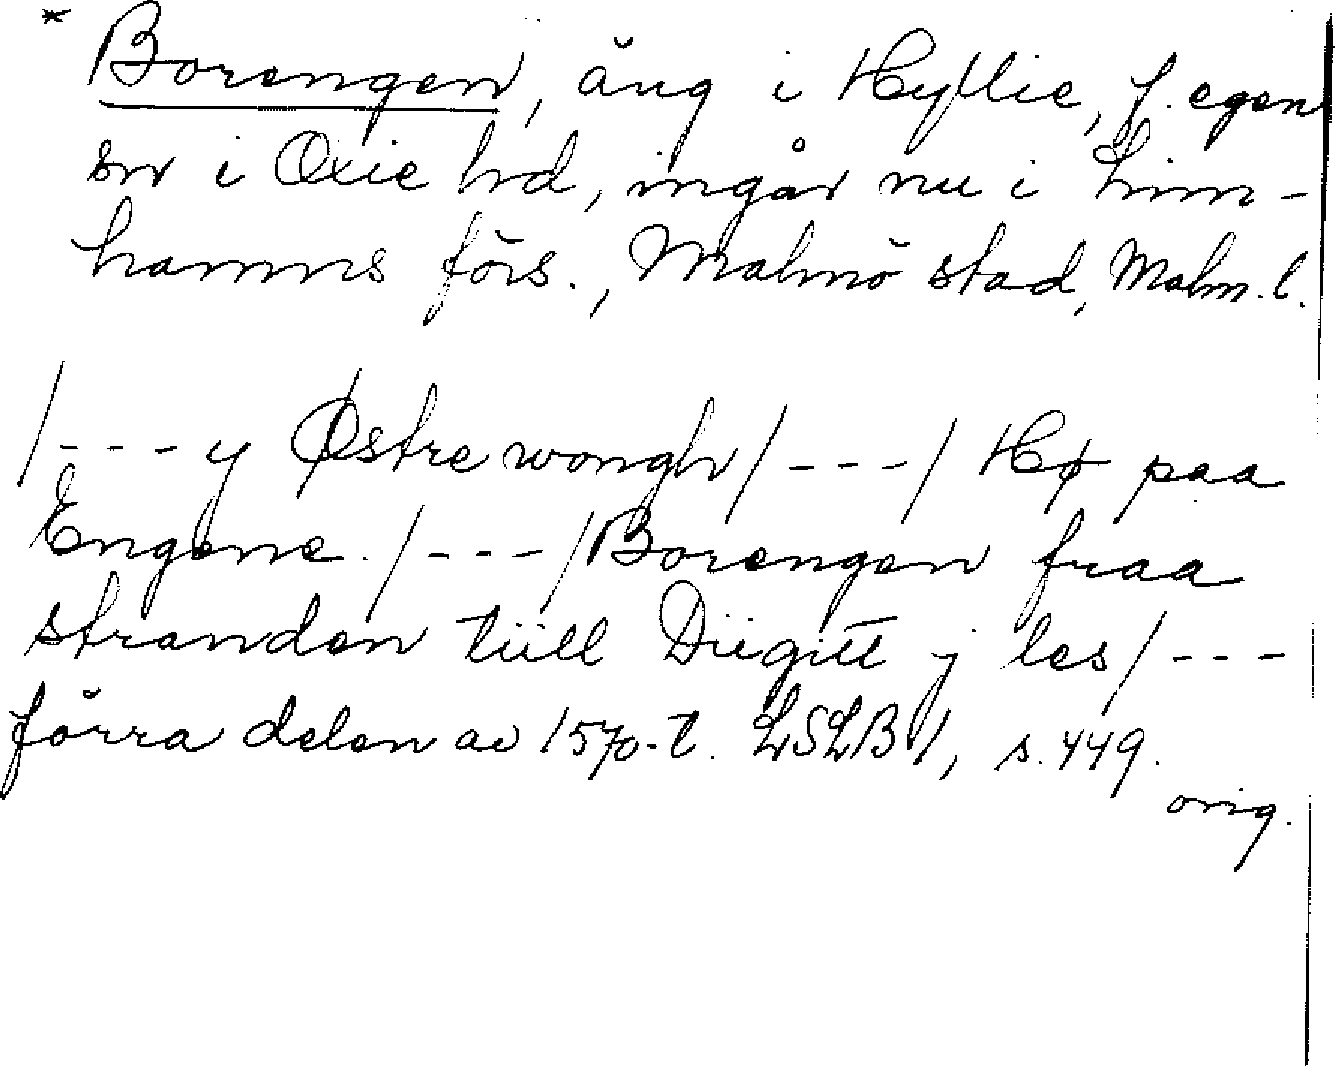 * Borengen, äng i Hyllie, f. egen
sn i Oxie hd, ingår nu i Lim-
hamns förs., Malmö stad, Malm. l.
/--- y Østre wongh/---/ Hø paa
Engene. /---/ Borengen fraa
stranden tiill Diigitt y les/---
förra delen av 1570-t. LSLB 1, s. 449.
orig.